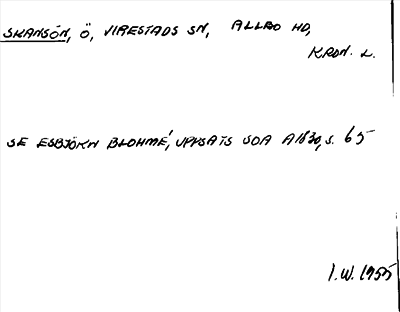 SKANSÖN, Ö, VIRESTADS SN, ALLBO HD,
KRON. L.
SE ESBJÖRN BLOHMÉ, UPPSATS SOA A1830, S. 65
I.W. 1955